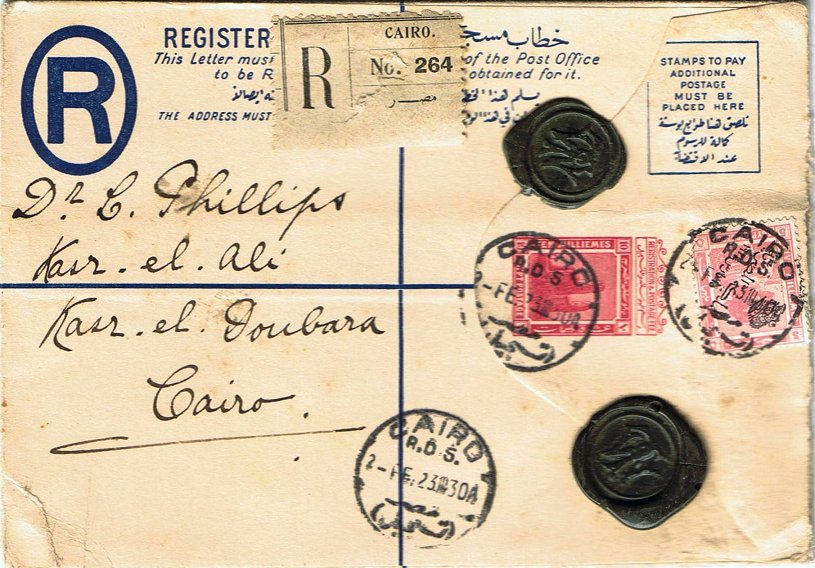 R
REGISTER
This Letter must
to be R
THE ADDRESS MUST
CAIRO.
R
No. 264
مصر
خطاب
of the Post Office
obtained for it.
يسلم هذا
STAMPS TO PAY
ADDITIONAL
POSTAGE
MUST BE
PLACED HERE
تلصق هنا طوابع بوستة
كالة للرسوم
عند الاقتضاء
Dr. C. Phillips
Kasr-el-Ali
Kasr-el-Doubara
Cairo.
MILLIEMES
10
10
REGISTRATION & POSTAGE FEE
CAIRO
R.D.S.
2-FE.23
مصر
CAIRO
R.D.S.
FE.23
CAIRO
R.D.S.
2-FE.23
مصر
(تسجيل)